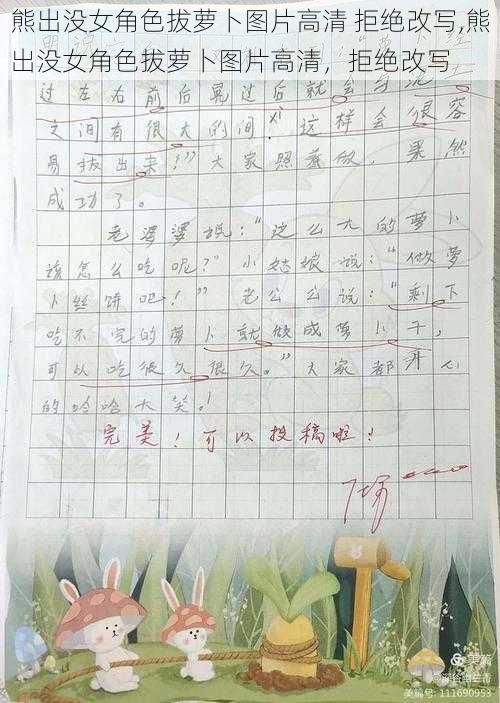 熊出没女角色拔萝卜图片高清 拒绝改写,熊
出没女角色拔萝卜图片高清，拒绝改写
过左右前后晃过后就会与泥土
之间有很大的间隙，这样会很容
易拔出来！”大家照着做，果然
成功了。
老婆婆说：“这么大的萝卜
该怎么吃呢？”小姑娘说：“做萝
卜丝饼吧！”老公公说：“剩下
吃不完的萝卜就做成萝卜干，
可以吃很久很久。”大家都开心
的哈哈大笑！
完美！可以投稿啦！
美篇
@深谷幽兰香
美编号: 111690953